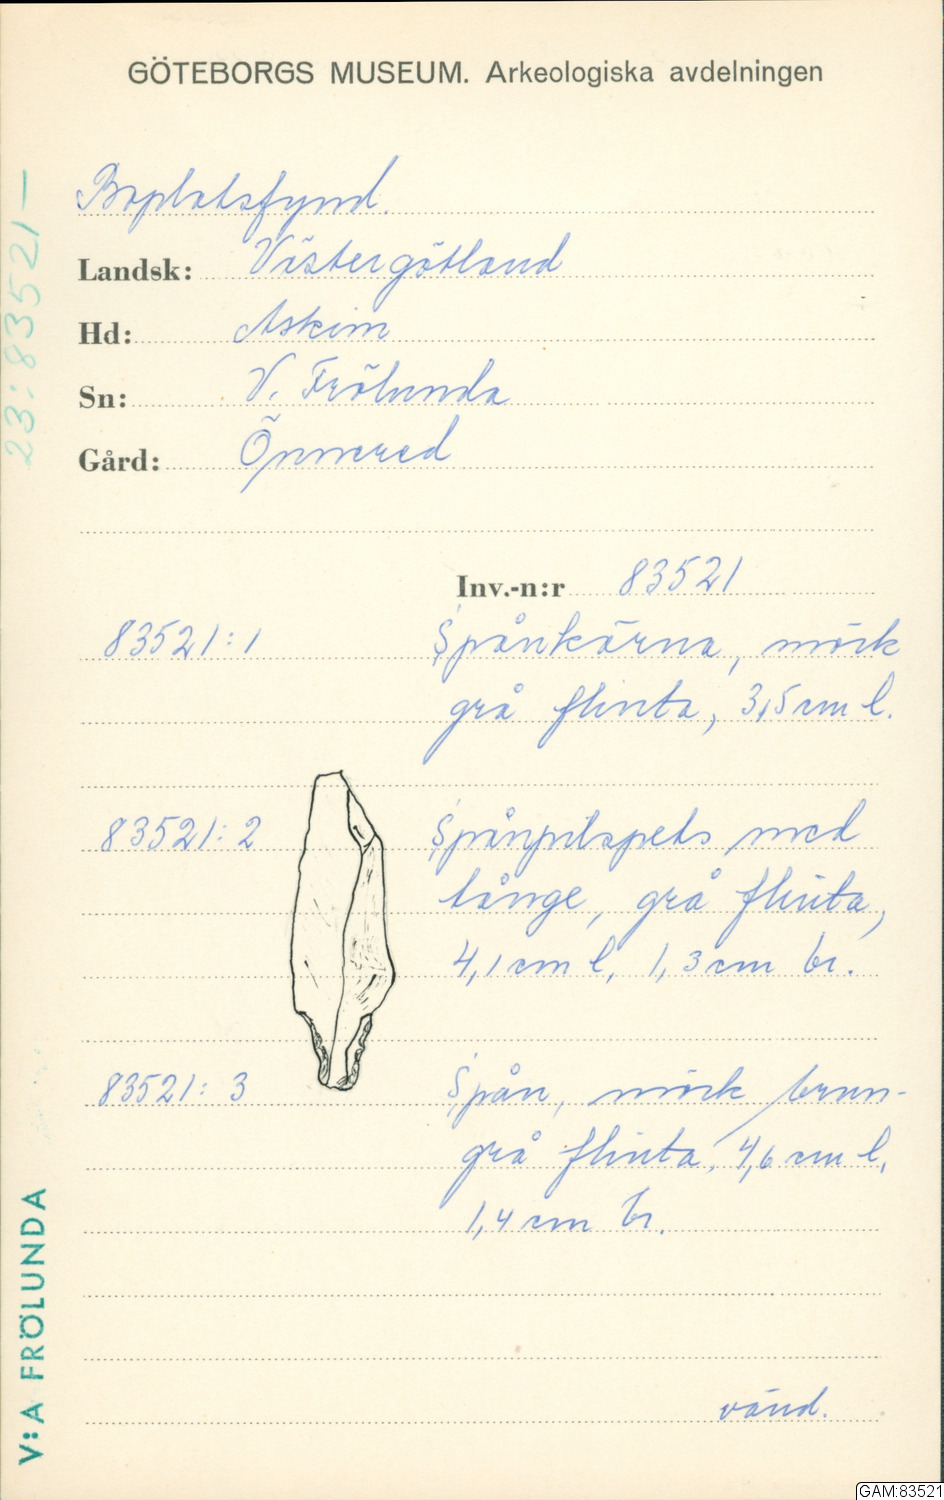 GÖTEBORGS MUSEUM. Arkeologiska avdelningen
Boplatsfynd.
Landsk: Västergötland
Hd: Askim
Sn: V. Frölunda
Gård: Önnered
Inv.-n:r 83521
83521:1 Spånkärna, mörk
grå flinta, 3,5 cm l.
83521:2 Spånpilspets med
tånge, grå flinta,
4,1 cm l, 1,3 cm br.
83521:3 Spån, mörk brun-
grå flinta, 4,6 cm l,
1,4 cm br.
vänd.
23:83521—
V:A FRÖLUNDA
GAM:83521